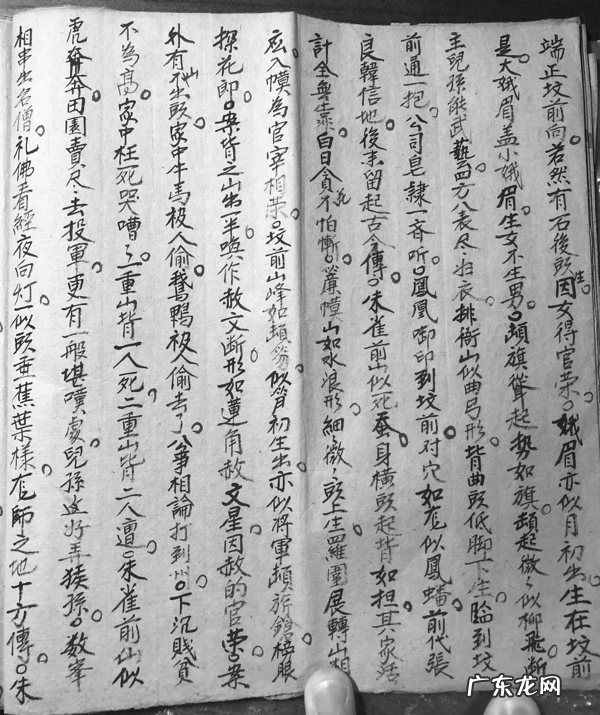 端正坟前向若然有石後頭生因女得官荣娥眉亦似月初出生在坟前
是大娥眉盖小娥眉生女不生男頓旗聳起勢如旗頓起微々似柳飛断
主兒孫能武藝四方八表尽扫衣排衙山似曲弓形皆曲頭低脚下生臨到坟
前通一抱公司皂隸一斉听鳳凰啣印到坟前対穴如龙似鳳蟠前代張
良韓信地後来留起古今傳朱雀前山似死蚕身横頭起皆如担其家活
計全無靠白日貪花不怕慚簾幙山如水浪形細微々頭上生羅圍展轉山相
应入幙為官宰相荣坟前山峰如頓笏似笋初生出亦似将軍頓旂鎗榜眼
探花郎案皆之山出一半喚作赦文断形如蓮角赦文星因赦的官荣案
外有山不出頭家中牛馬被人偷鵞鴨被人偷去了公事相論打到州下沉賎貧
不為高家中枉死哭嘈々一重山皆一人死二重山皆二人遭朱雀前山似
虎奔奔田園賣尽去投軍更有一般堪嘆處兒孫送好弄猴孫数峯
相串出名僧礼佛看經夜向灯一似頭垂蕉葉樣龙師之地十方傳朱
广东龙网